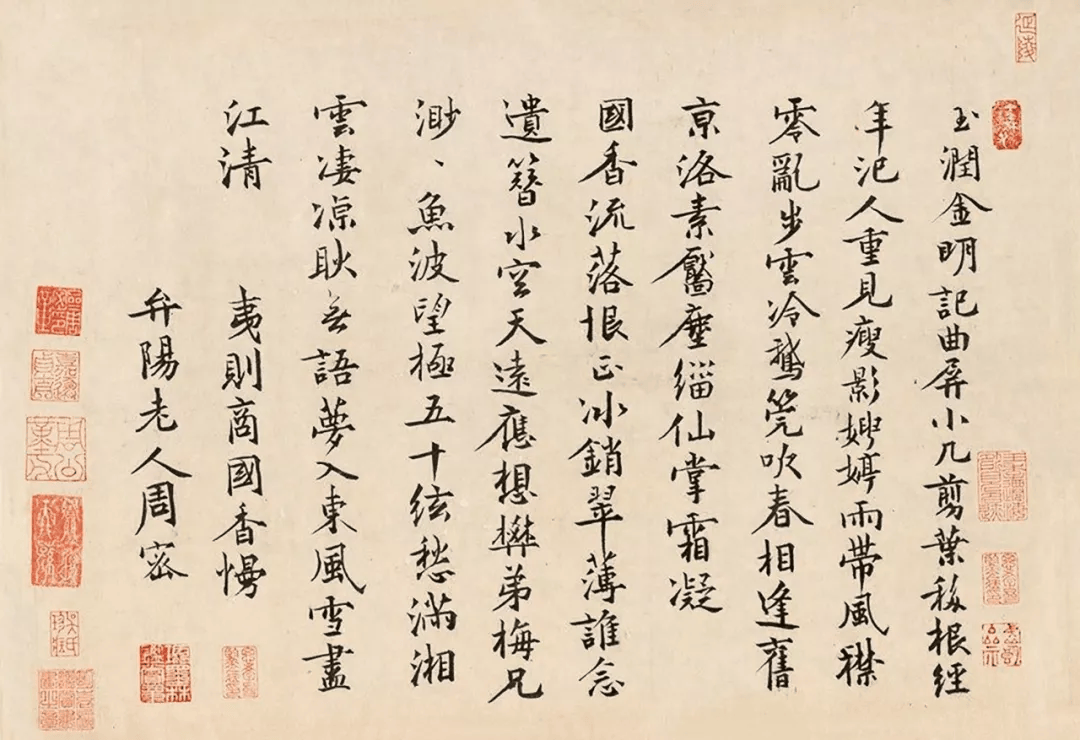 玉潤金明記曲屏小几剪葉移根經
年汜人重見瘦影娉婷雨帶風襟
零亂步雲冷鵞筦吹春相逢舊
京洛素靨塵緇仙掌霜凝
國香流落恨正冰銷翠薄誰念
遺簪水空天遠應想礬弟梅兄
渺丶魚波望極五十絃愁滿湘
雲凄凉耿無語夢入東風雪盡
江清
夷則商國香慢
弁陽老人周密